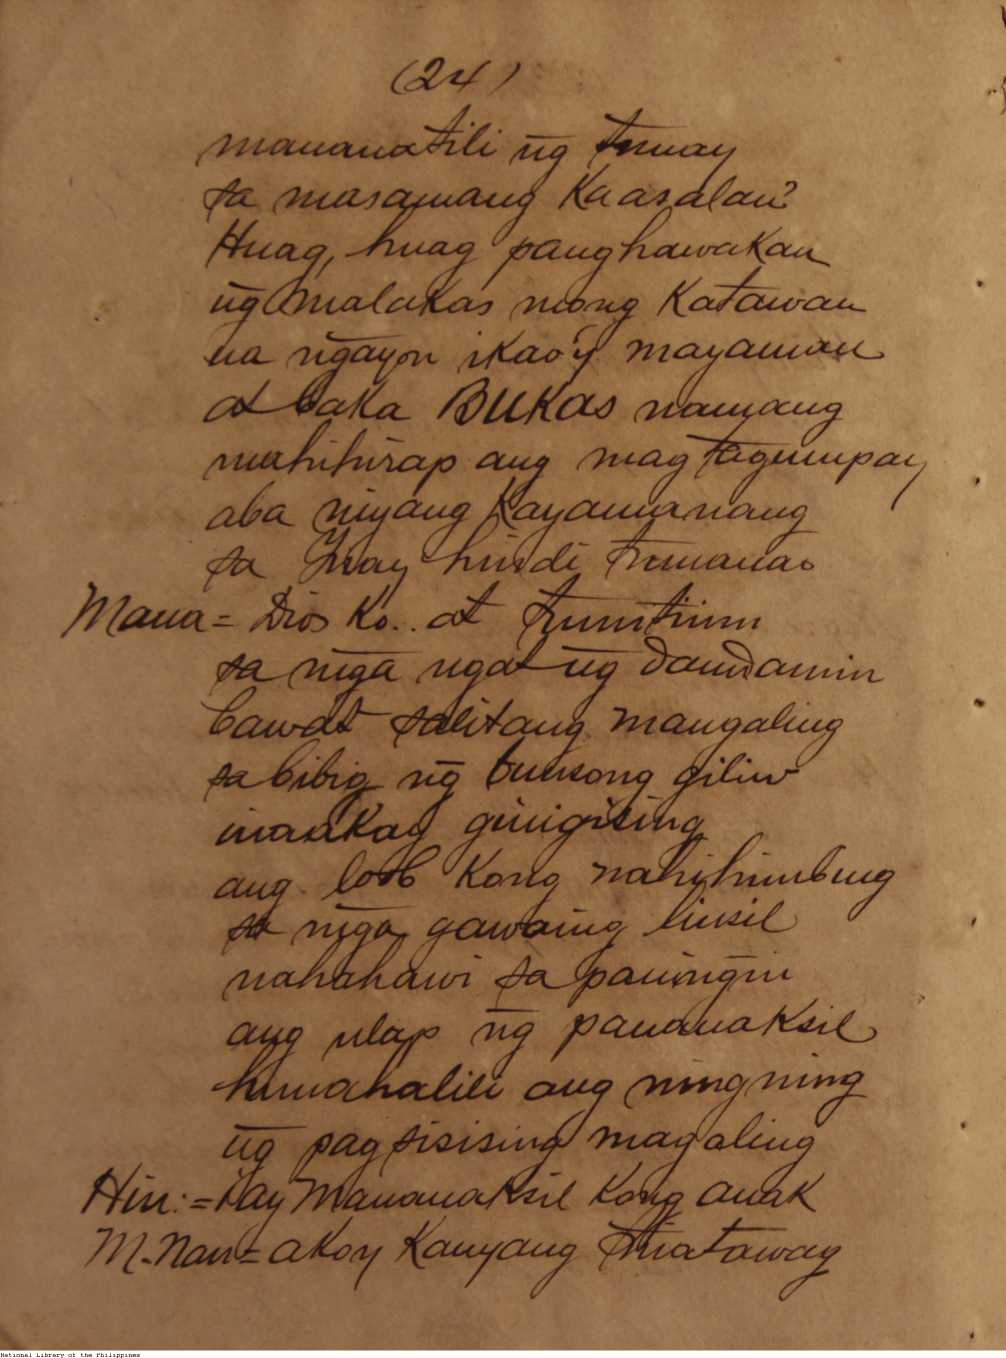 (24)
mananatili ng tunay
sa masamang Kaasalan?
Huag, huag panghawakan
ng malakas mong Katawan
na ngayon ikao'y mayaman
at baka BUKAS namang
mahihirap ang mag tagumpay
aba niyang Kayamanang
sa Inay hindi tumana
Mana = Dios Ko... at tumitiim
sa mga ugat ng damdamin
bawat salitang mangaling
sa bibig ng bunsong giliw
inaakay ginigising
ang loob Kong nahihimbing
sa mga gawaing linsil
nahahawi sa paningin
ang ulap ng pananaksil
humahalili ang ningning
ng pagsisising magaling
Hin: = Tay Mananaksil Kong anak
M. Nan = akoy Kanyang tinatawag
National Library of the Philippines